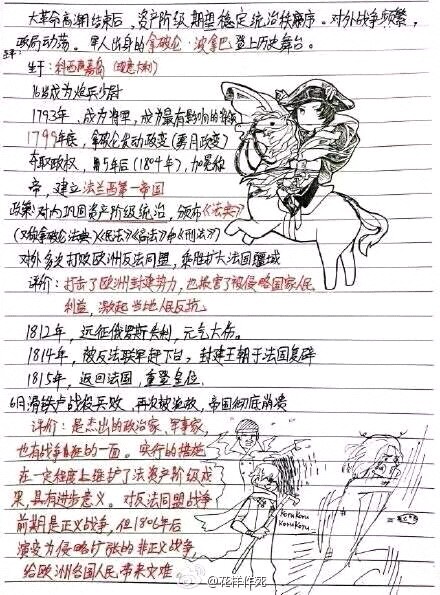 大革命高潮结束后，资产阶级期望稳定统治秩序。对外战争频繁，
政局动荡。军人出身的拿破仑·波拿巴登上历史舞台。
生于：科西嘉岛
16岁成为炮兵少尉
1793年，成为将军，成为最有影响的
1799年底，拿破仑发动政变（雾月政变）
夺取政权，用5年后（1804年），加冕称
帝，建立法兰西第一帝国
政策：对内巩固资产阶级统治，颁布《法典》
（又称拿破仑法典）《民法》《商法》和《刑法》
对外多次打败欧洲反法同盟，乘胜扩大法国疆域
评价：打击了欧洲封建势力，也损害了被侵略国家人民
利益，激起当地人民反抗
1812年，远征俄罗斯失利，元气大伤。
1814年，被反法联军赶下台，封建王朝于法国复辟
1815年，返回法国，重登皇位
6月滑铁卢战役兵败，再次被流放，帝国彻底崩溃
评价：是杰出的政治家、军事家，
也有战争狂的一面。实行的措施
在一定程度上维护了法资产阶级成
果，具有进步意义。对反法同盟战争
前期是正义战争，但1806年后
演变为侵略扩张的非正义战争，
给欧洲各国人民带来灾难
KoruKoru
KoruKoru...
@花样作死